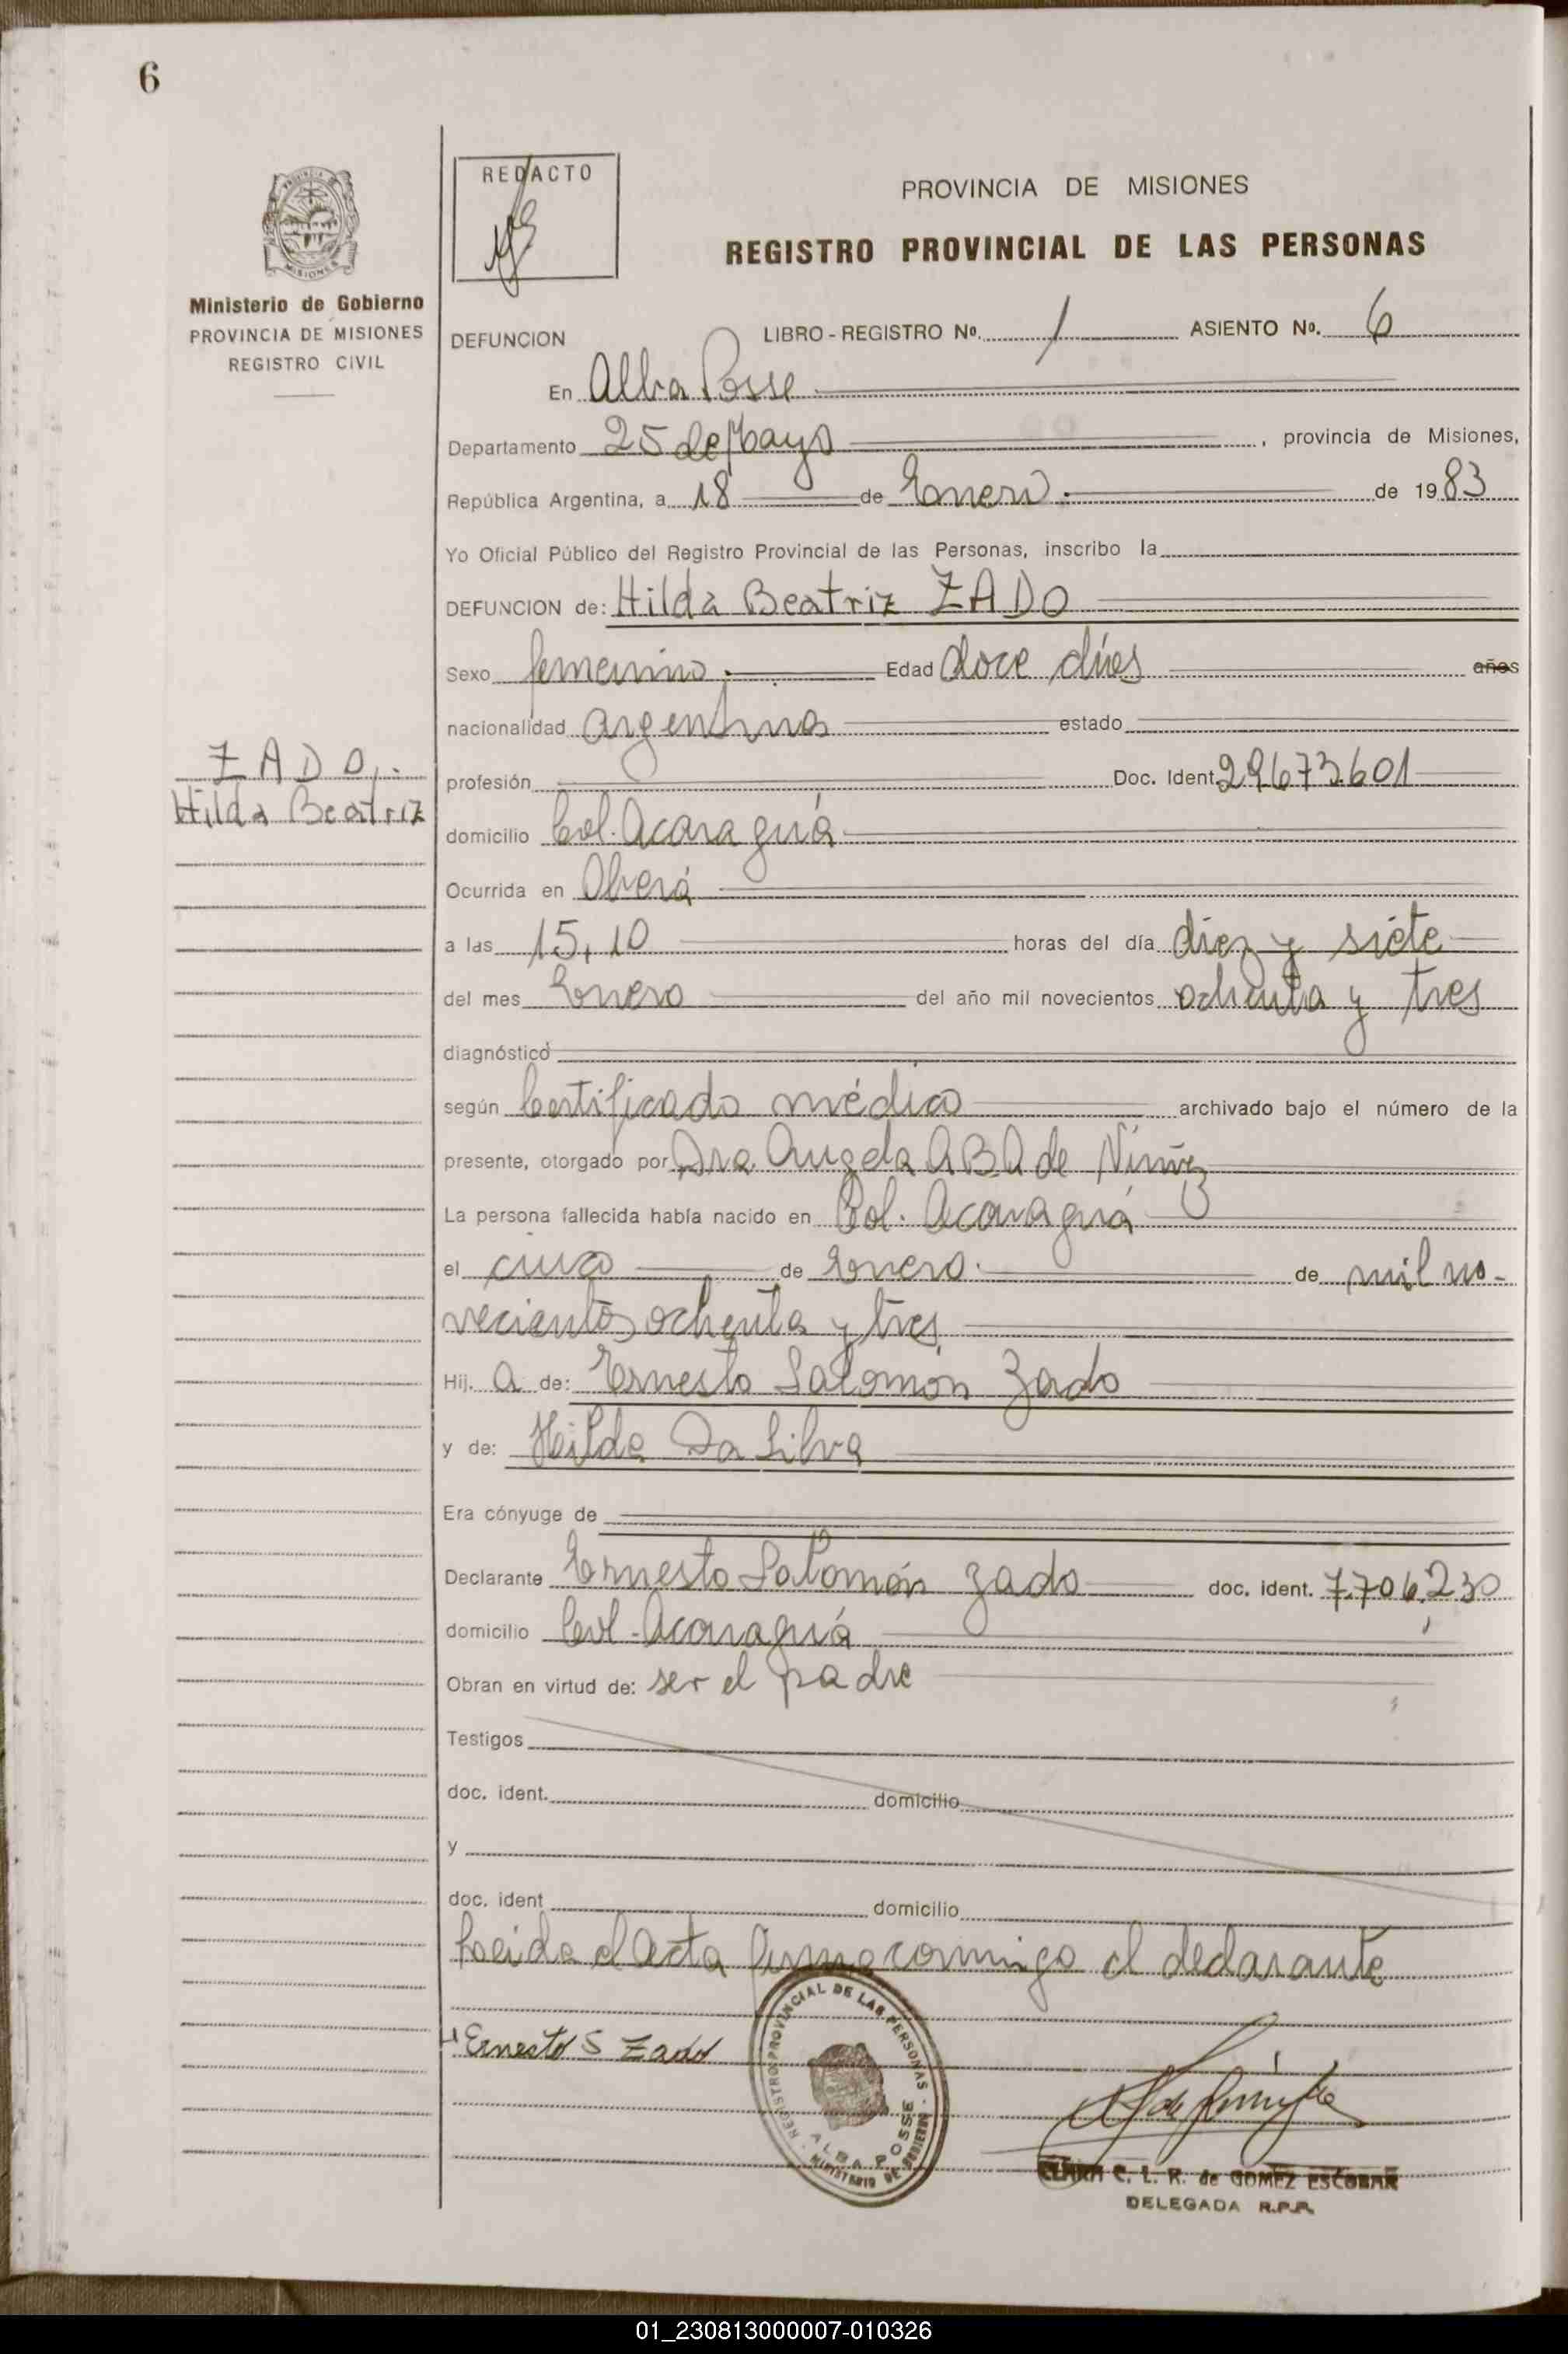 6
REDACTO
PROVINCIA DE MISIONES
REGISTRO PROVINCIAL DE LAS PERSONAS
MISIONES
Ministerio de Gobierno
PROVINCIA DE MISIONES
REGISTRO CIVIL
DEFUNCION LIBRO - REGISTRO No. 1 ASIENTO No. 6
En Alba Posse
Departamento 25 de Mayo, provincia de Misiones,
República Argentina, a 18 de Enero de 1983
Yo Oficial Público del Registro Provincial de las Personas, inscribo la
DEFUNCION de: Hilda Beatriz ZADO
Sexo femenino Edad doce días años
nacionalidad argentina estado
ZADO,.
Hilda Beatriz
profesión Doc. Ident. 29.673.601
domicilio Col. Acaraguá
Ocurrida en Oberá
a las 15,10 horas del día diez y siete
del mes Enero del año mil novecientos ochenta y tres
diagnóstico
según Certificado médico archivado bajo el número de la
presente, otorgado por Dra. Angela ABA de
La persona fallecida había nacido en Col. Acaraguá
el cinco de Enero de mil no-
vecientos ochenta y tres
Hij. a de: Ernesto Salomón Zado
y de: Hilda Da Silva
Era cónyuge de
Declarante Ernesto Salomón Zado doc. ident. 7.706.230
domicilio Col. Acaraguá
Obran en virtud de: ser el padre
Testigos
doc. ident. domicilio
y
doc. ident domicilio
Leida el Acta firma conmigo el declarante
Ernesto S Zado
REGISTRO PROVINCIAL DE LAS PERSONAS
ALBA POSSE
MINISTERIO DE GOBIERNO
C. L. R. de GOMEZ ESCOBAR
DELEGADA R.P.P.
01_230813000007-010326